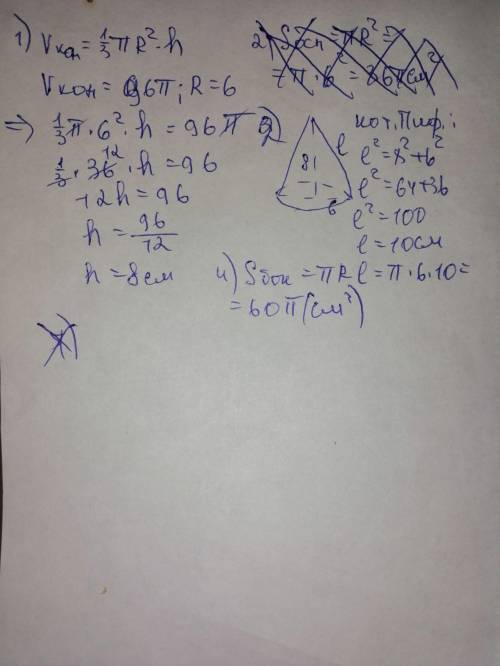 1) Vкон = 1/3 πR² · h
Vкон = 96π; R = 6
=> 1/3 π · 6² · h = 96π
1/3 · 36 · h = 96
12
12h = 96
h = 96/12
h = 8 см
2) Sосн = πR² =
= π · 6² = 36π см²
2)
8
l
6
по т. Пиф.:
l² = 8² + 6²
l² = 64 + 36
l² = 100
l = 10 см
4) Sбок = πRl = π · 6 · 10 =
= 60π (см²)